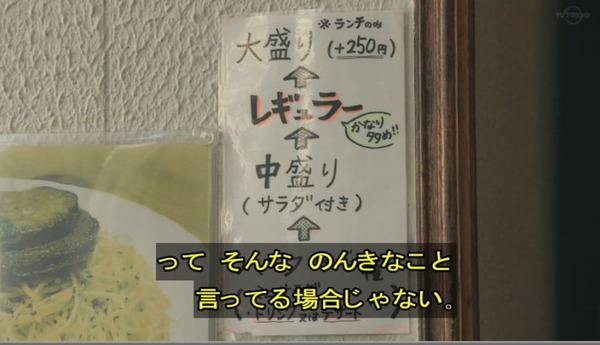 TV TOKYO
※ランチのみ
大盛り (+250円)
レギュラー
かなり
多め!!
中盛り
(サラダ付き)
って そんな のんきなこと
言ってる場合じゃない。
ドリンク又はデザート